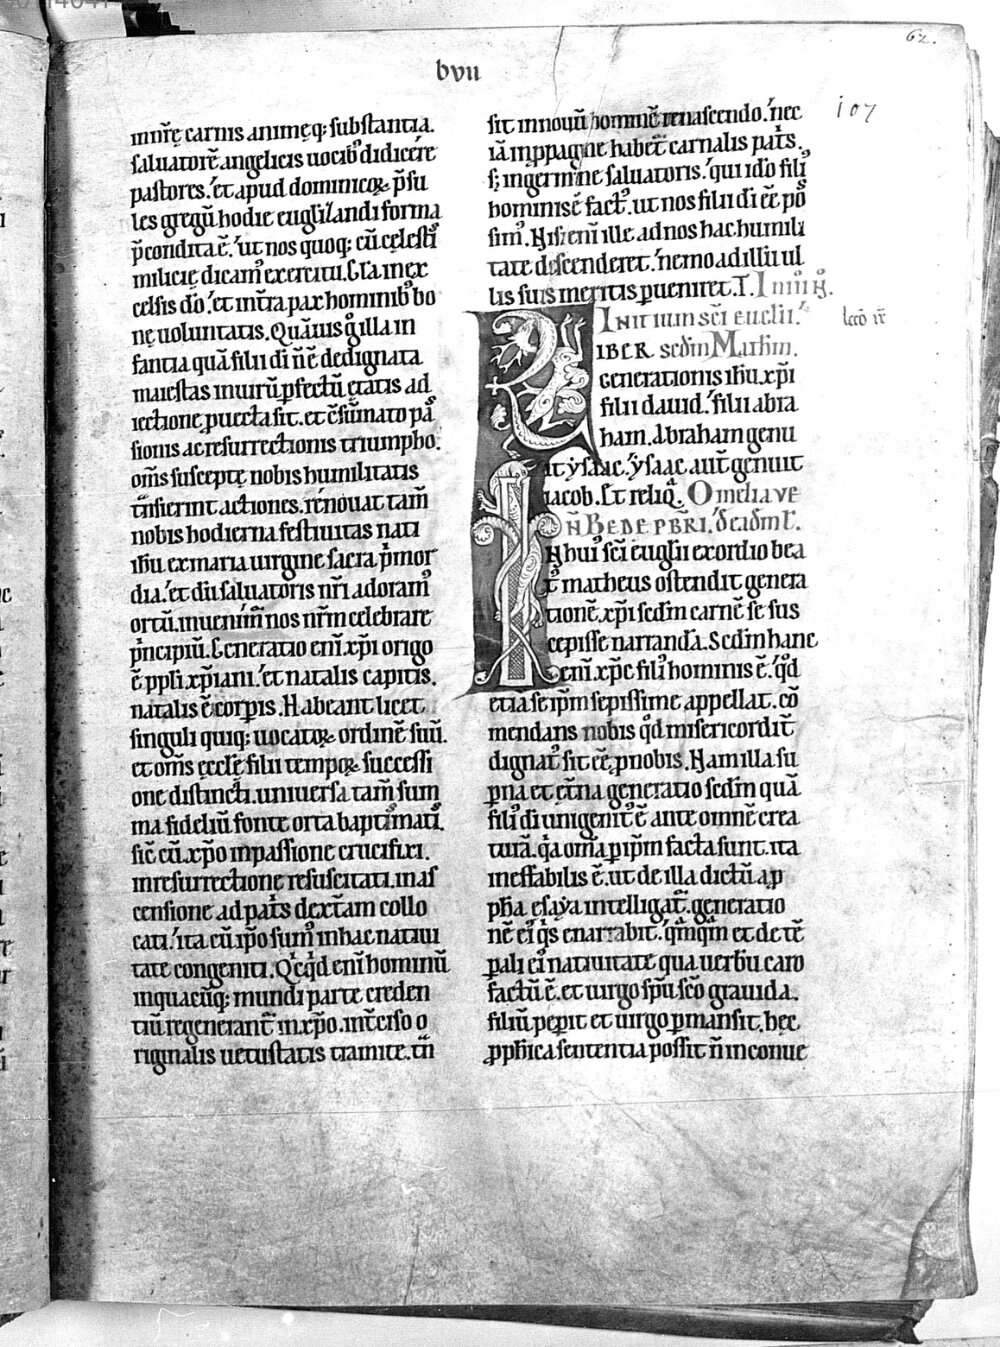 62.
bvii
107
inn̄rę carnis animęq; substantia.
saluatorē angelicis uocib; didicēre
pastores. et apud dominicoꝝ p̄su
les gregū hodie euglilandi forma
p̄condita ē. ut nos quoq; cū cęlesti
milicię dicam; exercitu. Gl̄a in ex
celsis dō. et in tr̄a pax hominib; bo
nę uoluntatis. Quāuis g illa in
fantia quā filii di n̄ ē dedignata
maiestas in uirū ꝑfectū ętatis ad
iectione ꝓuecta sit. et cs̄ūmato pas
sionis ac resurrectionis triumpho.
om̄s susceptę nobis humilitatis
tn̄sierint actiones. renouat tam̄
nobis hodierna festiuitas nati
ihu ex maria uirgine sacra p̄mor
dia. et dū saluatoris nr̄i adoram;
ortū. inuenim; nos nr̄m celebrare
p̄ncipiū. Generatio eni xp̄i origo
ē ppl̄i xp̄iani. et natalis capitis.
natalis ē corꝑis. Habeant licet
singuli quiq; uocatoꝝ ordinē suū.
et om̄s ęcclę filii tempoꝝ successi
one distincti. uniuersa tam̄ sum
ma fideliū fonte orta baptismatis.
sic̄ cū xp̄o in passione crucifixi.
in resurrectione resuscitati. in as
censione ad pat̄s dext̄am collo
cati. ita cū ip̄o sum; in hac natiui
tate congeniti. Qicq̇d eni hominū
in quacūq; mundi parte creden
tiū regenerant̄ in xp̄o. int̄ciso o
riginalis uetustatis tramite. tn̄
sit in nouū hominē renascendo. nec
iā in ppagine habet̄ carnalis pat̄s.
s; in germine saluatoris. qui idō fili;
hominis ē fact;. ut nos filii di ēe pos
sim;. Nisi eni ille ad nos hac humili
tate descenderet. nemo ad illū ul
lis suis meritis ꝑueniret. T.
Initium sc̄i euglii.
lc̄o
LIBER sc̄dm Mathm.
generationis ihu xp̄i
filii dauid. filii abra
ham. Abraham genu
it ysaac. ysaac aut̄ genuit
iacob. Et reliq̄. Omelia ve
n̄. BEDE PBRI. de eadm l̄.
IN hui; sc̄i euglii exordio bea
t; matheus ostendit genera
tionē xp̄i sc̄dm carnē se sus
cepisse narrandā. Sc̄dm hanc
eni xp̄c fili; hominis ē. q̇d
etiā se ip̄m sępissime appellat. cō
mendans nobis q̇d misericordit̄
dignat; sit ēe ꝓ nobis. Nam illa su
ꝑna et ęt̄na generatio sc̄dm quā
fili; di unigenit; ē ante omnē crea
turā. q̇a om̄a ꝑ ip̄m facta sunt. ita
ineffabilis ē. ut de illa dictū a p
ph̄a esaya intelligat̄. generatio
nē ei; q̇s enarrabit. q̄mq̄m et de tē
ꝑali ei; natiuitate qua uerbū caro
factū ē. et uirgo sp̄u sc̄o grauida.
filiū peꝑit et uirgo ꝑmansit. hec
ꝓph̄ica sententia possit n̄ inconue